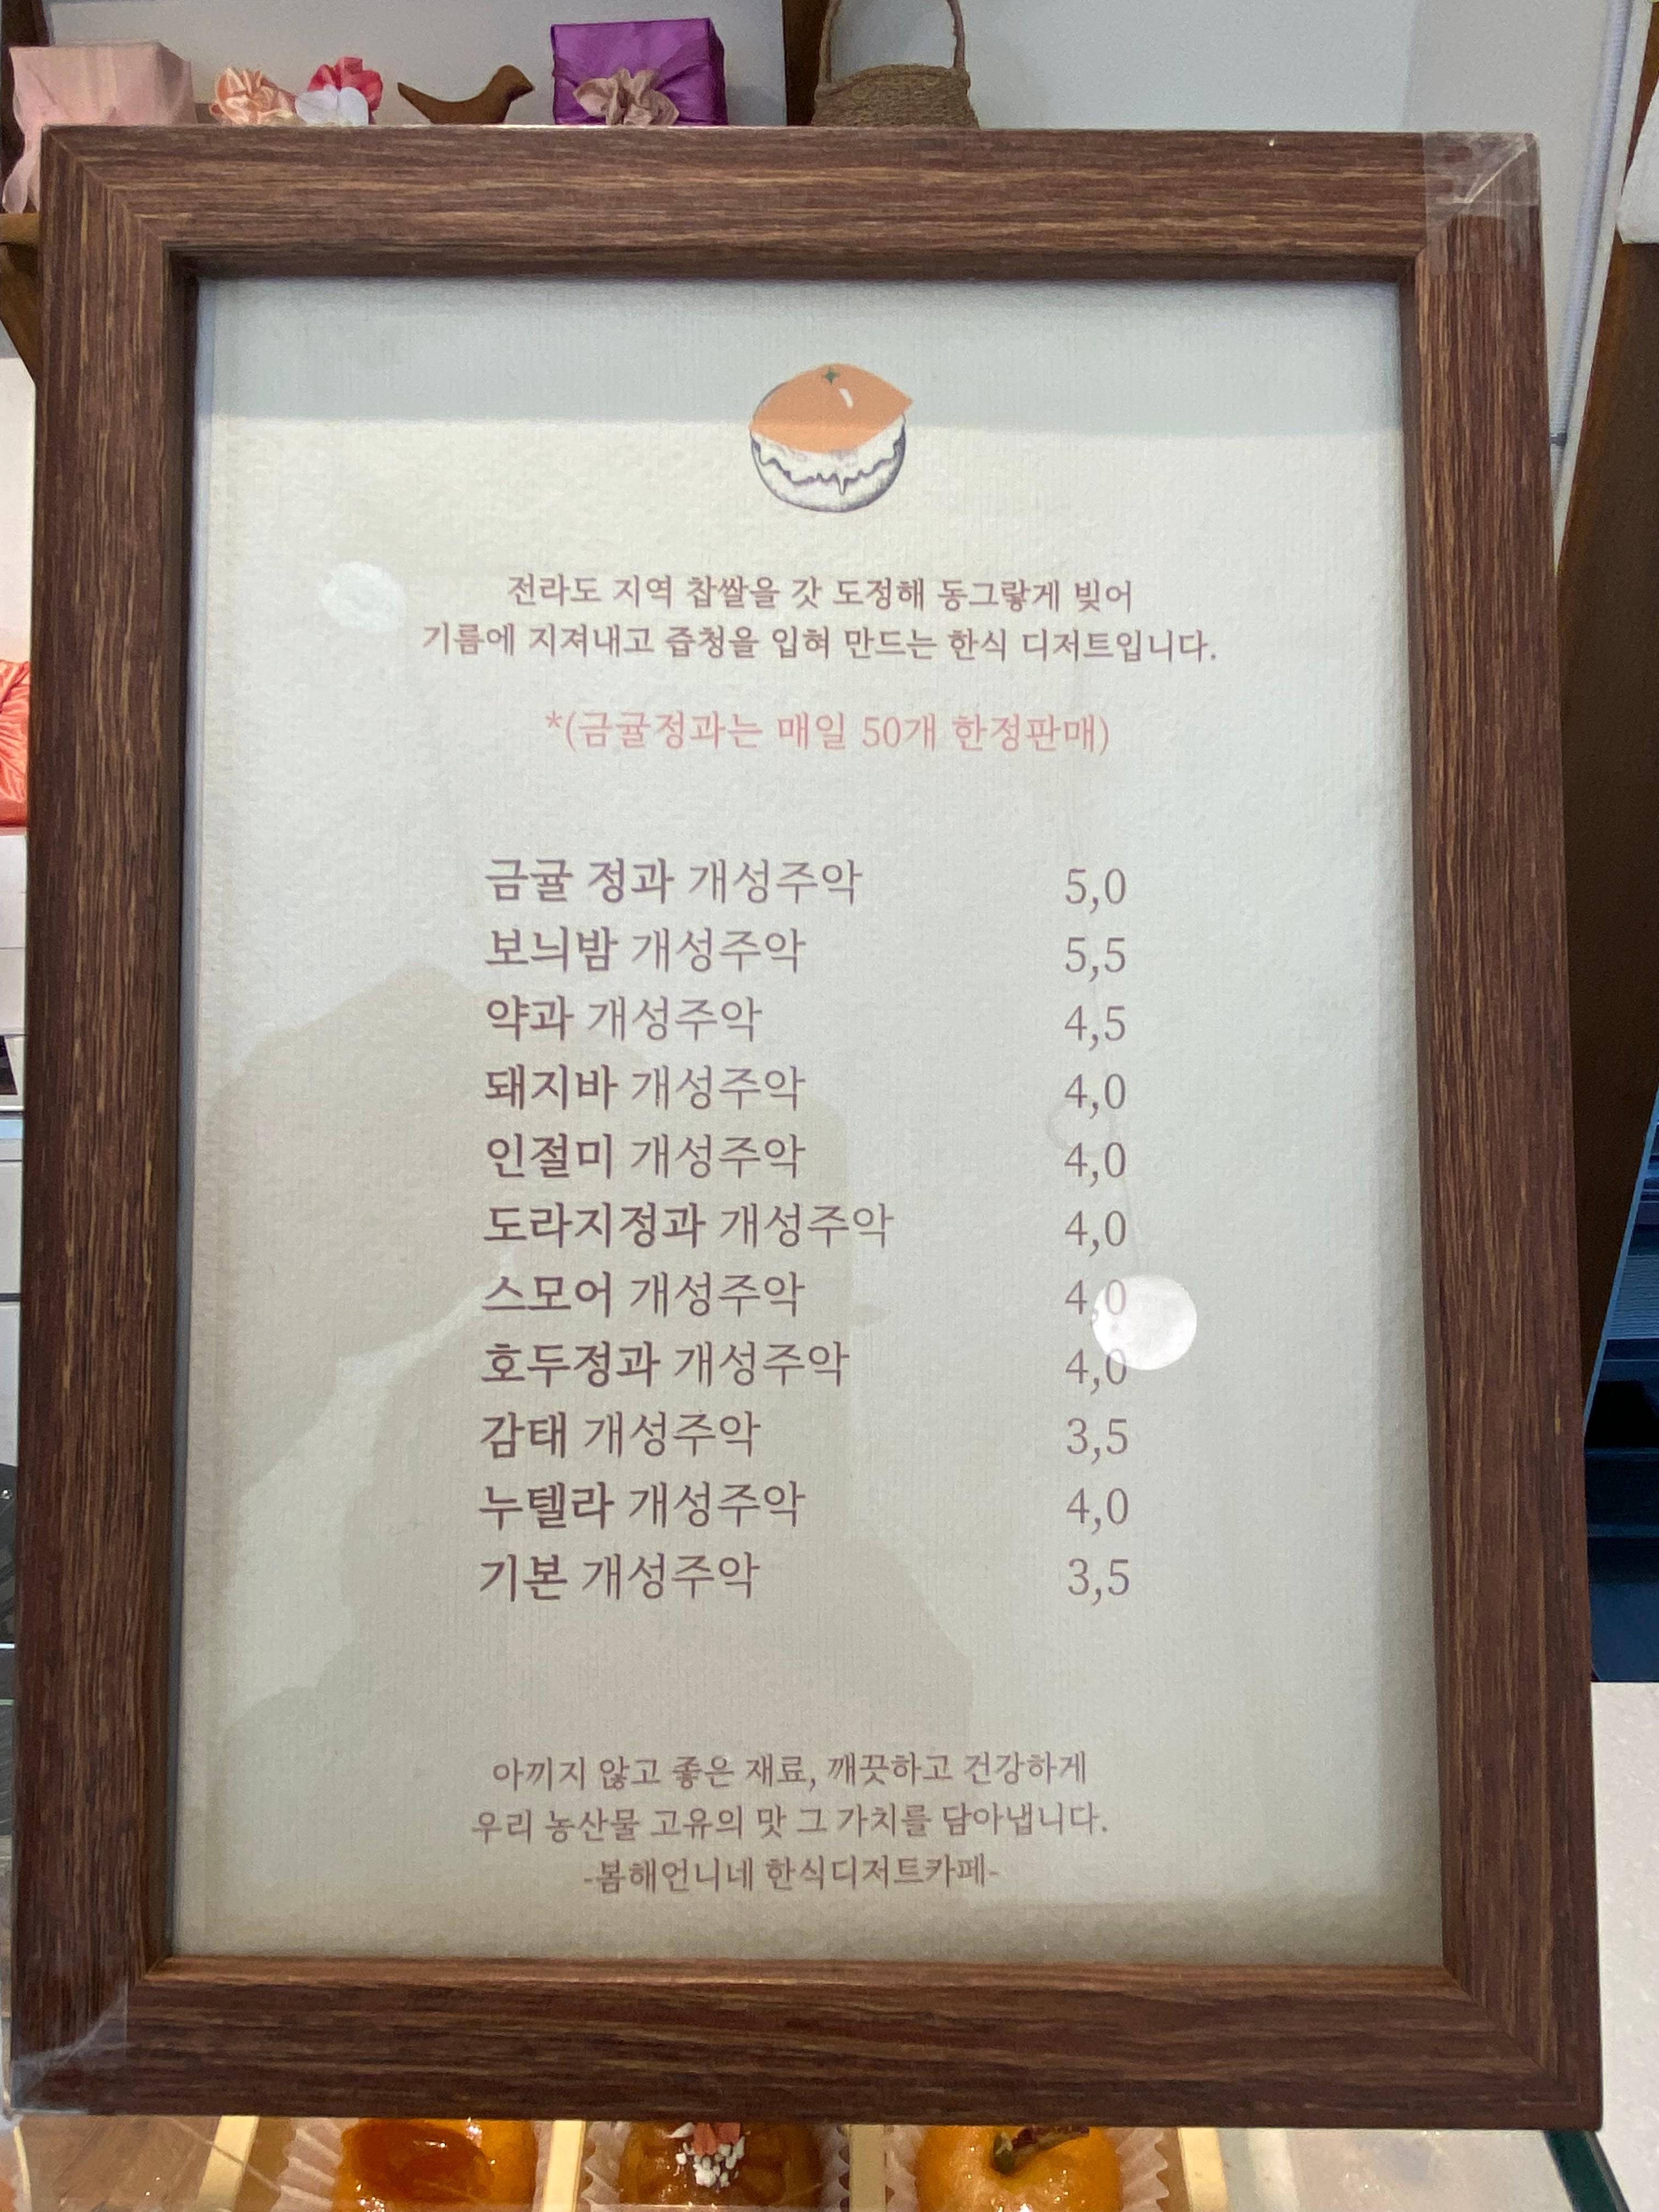 전라도 지역 찹쌀을 갓 도정해 동그랗게 빚어
기름에 지져내고 즙청을 입혀 만드는 한식 디저트입니다.
*(금귤정과는 매일 50개 한정판매)
금귤 정과 개성주악 5,0
보늬밤 개성주악 5,5
약과 개성주악 4,5
돼지바 개성주악 4,0
인절미 개성주악 4,0
도라지정과 개성주악 4,0
스모어 개성주악 4,0
호두정과 개성주악 4,0
감태 개성주악 3,5
누텔라 개성주악 4,0
기본 개성주악 3,5
아끼지 않고 좋은 재료, 깨끗하고 건강하게
우리 농산물 고유의 맛 그 가치를 담아냅니다.
-봄해언니네 한식디저트카페-